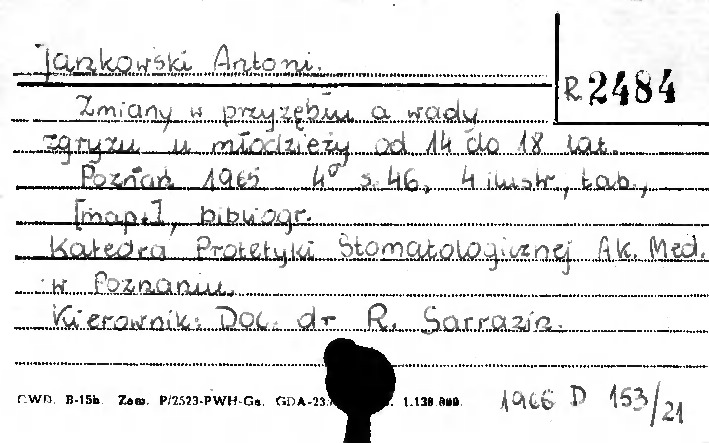 Jankowski Antoni.
R 2484
Zmiany w przyzębiu a wady
zgryzu u młodzieży od 14 do 18 lat.
Poznań 1965 4° s. 46, 4 ilustr., tab.,
[map.], bibliogr.
Katedra Protetyki Stomatologicznej Ak. Med.
w Poznaniu.
Kierownik: Doc. dr R. Sarrazin.
CWD. B-15b. Zam. P/2523-PWH-Gs. GDA-23. 1.138.000.
1966 D 153/21